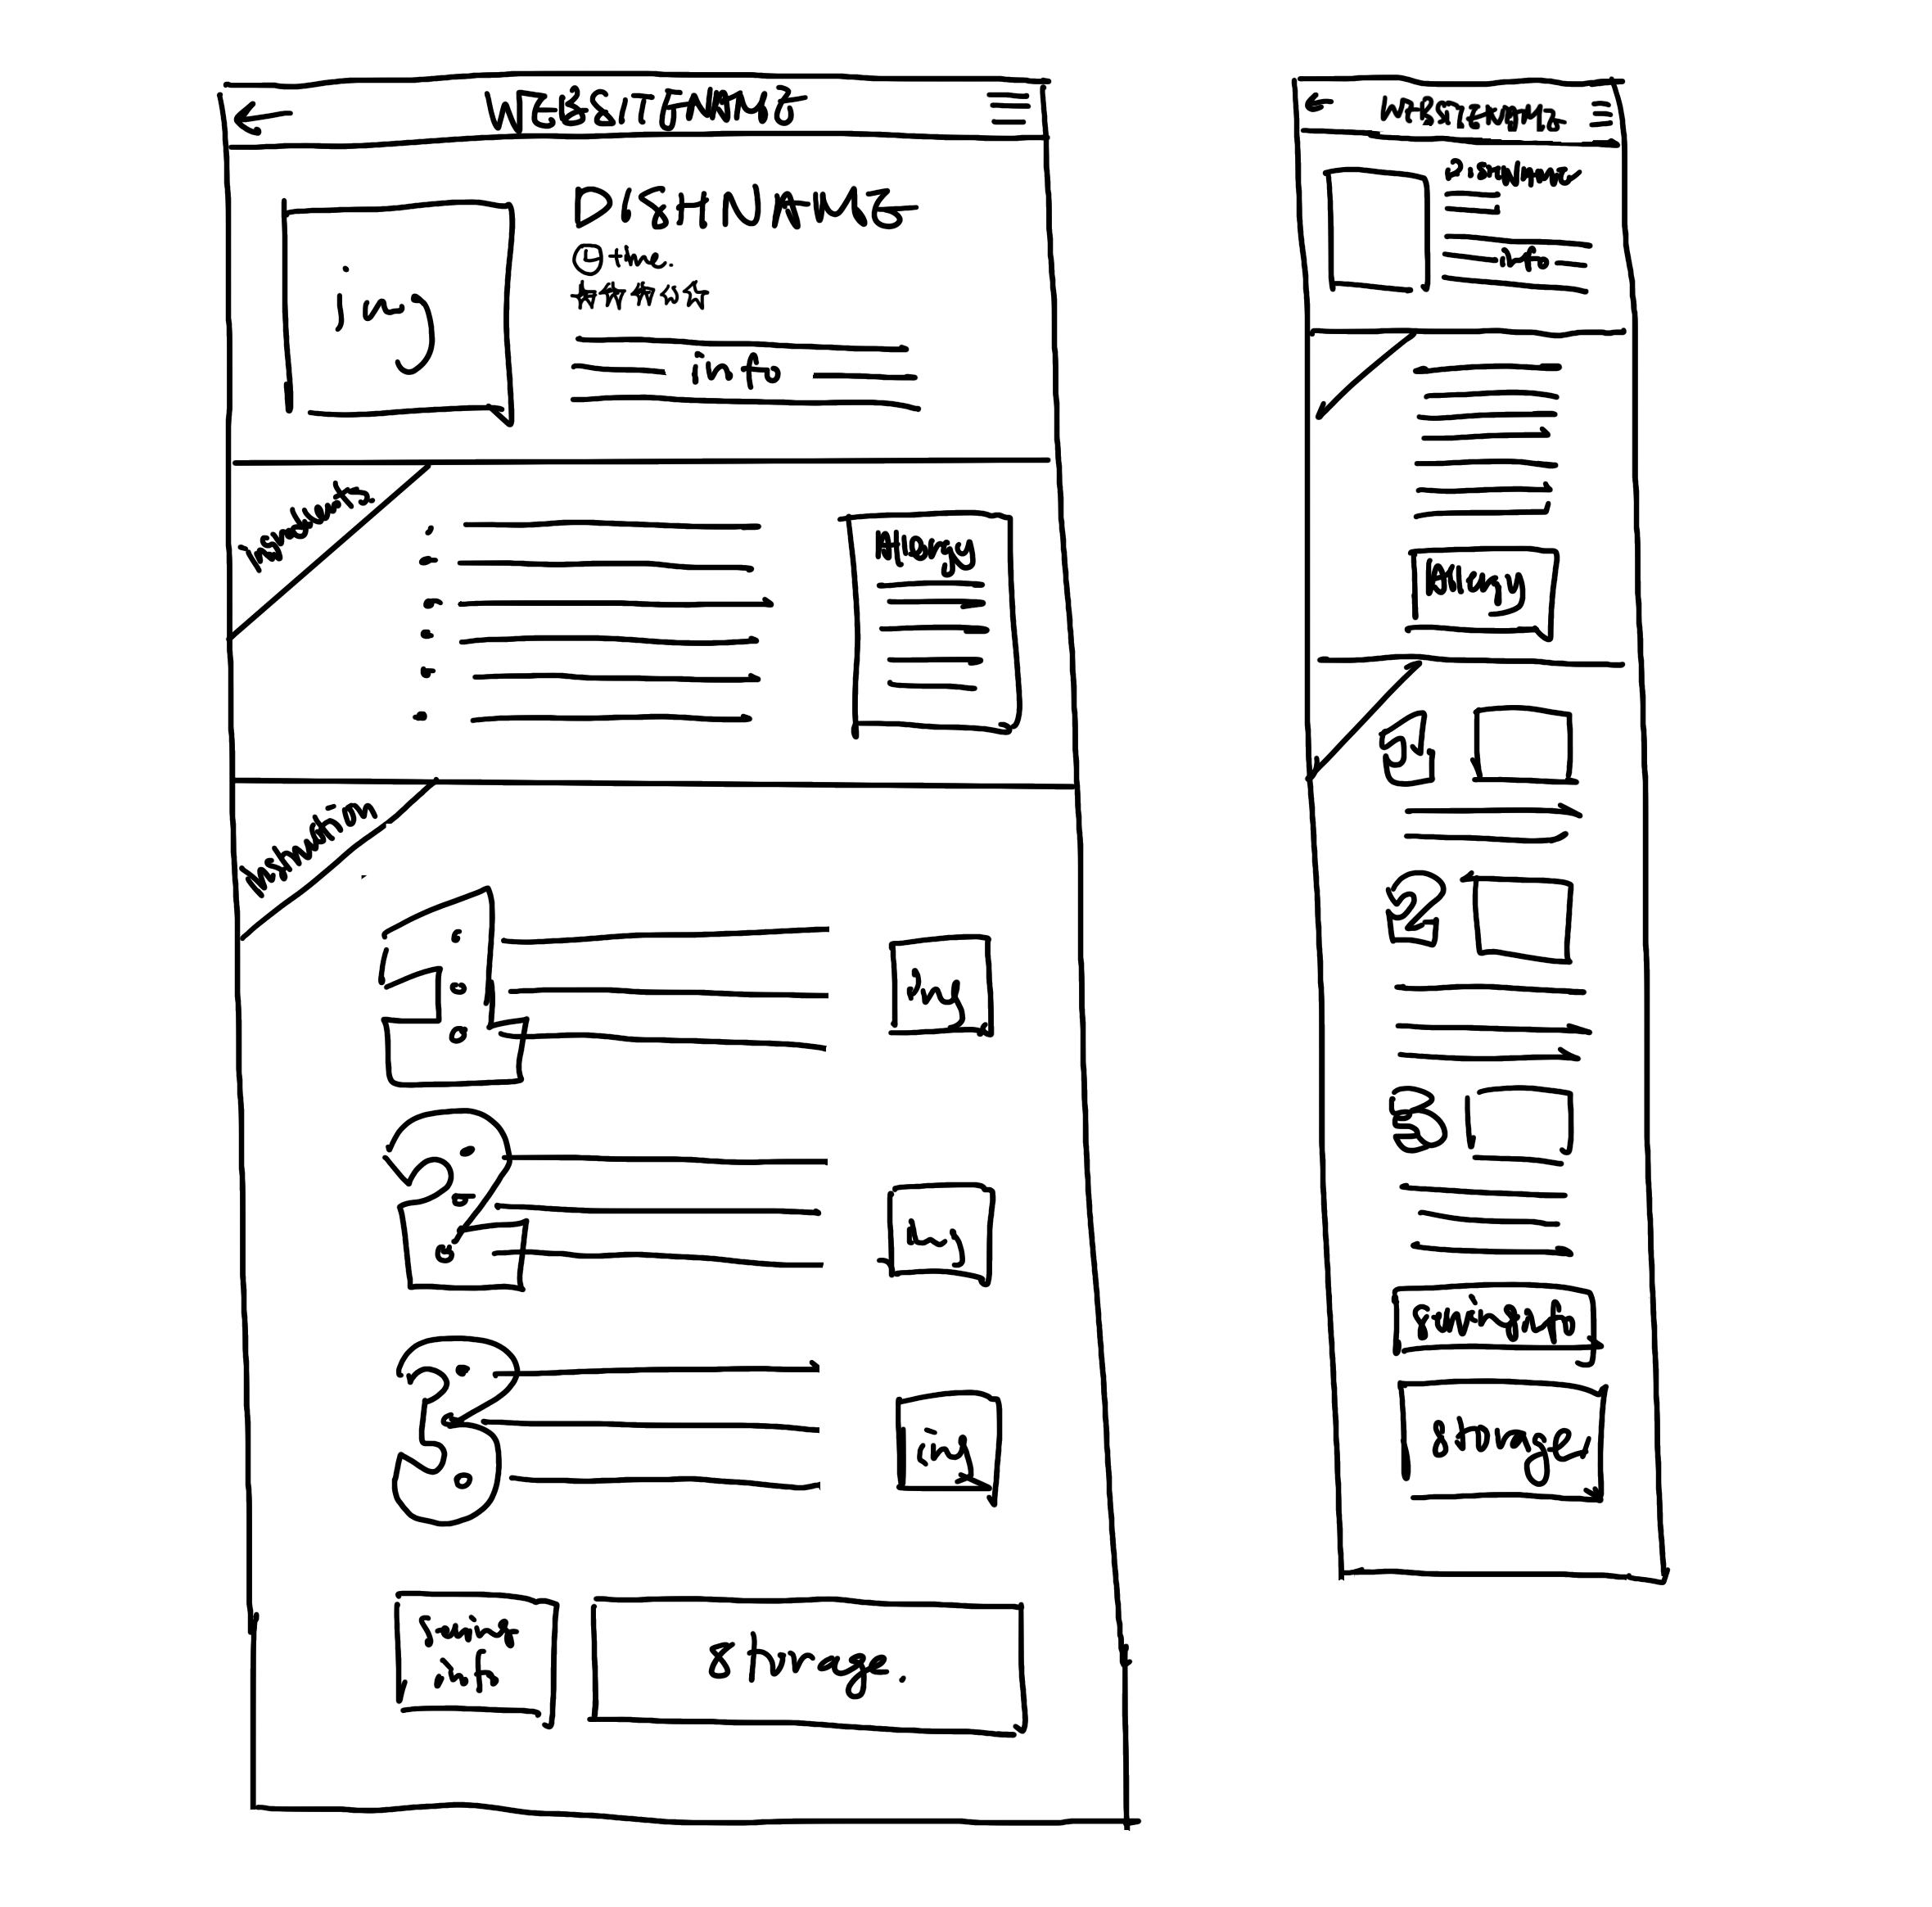 WEBSITENAME
DISHNAME
time.
img
info
ingredients.
Allergy
instruction
1
img
2
img
3
img
Serving
info
Storage.
WEBSITENAME
DISHNAME
info
Allergy
1
2
3
Serving info
Storage